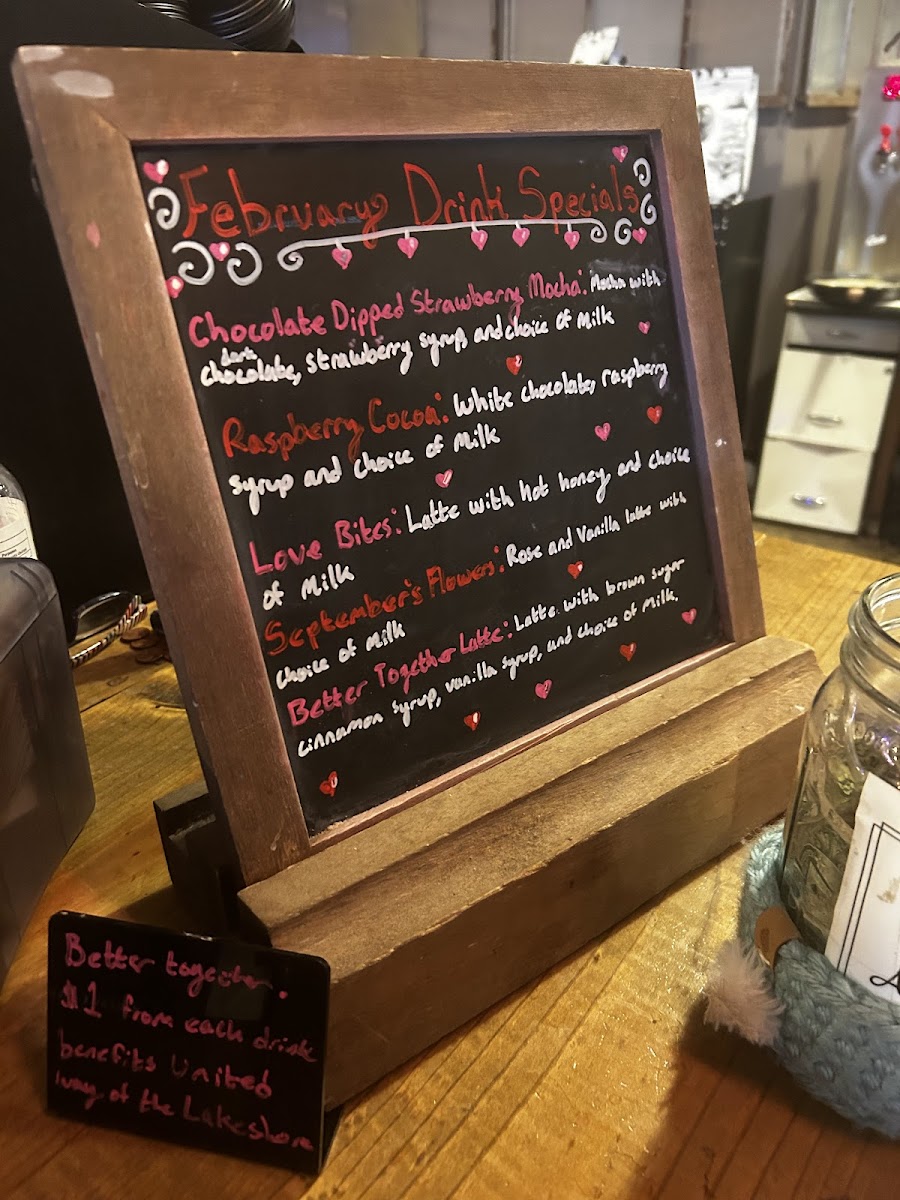 February Drink Specials
Chocolate Dipped Strawberry Mocha: Mocha with
dark
chocolate, strawberry syrup and choice of milk
Raspberry Cocoa: White chocolate, raspberry
syrup and choice of milk
Love Bites: Latte with hot honey and choice
of milk
September's Flowers: Rose and Vanilla latte with
choice of milk
Better Together Latte: Latte with brown sugar
cinnamon syrup, vanilla syrup, and choice of milk.
Better together.
$1 from each drink
benefits United
Way of the Lakeshore